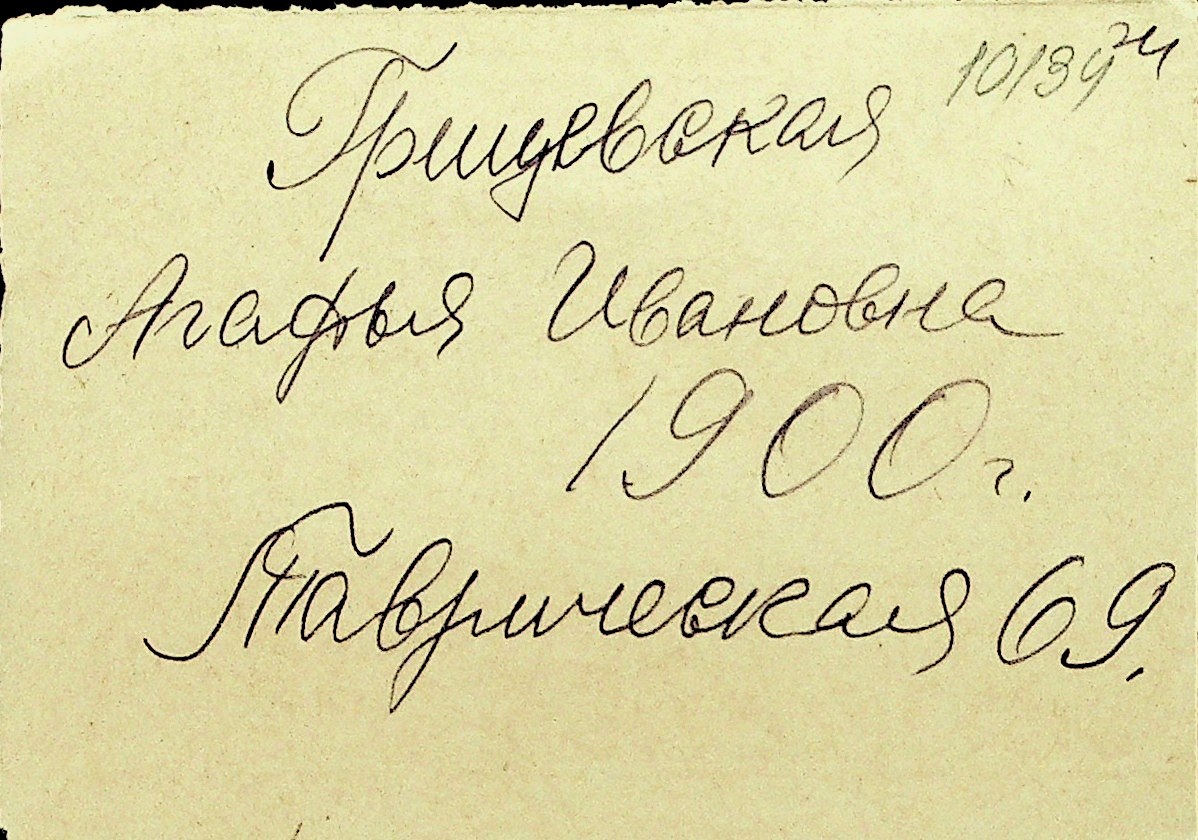 Грицевская
Агафья Ивановна
1900 г.
Таврическая 69.